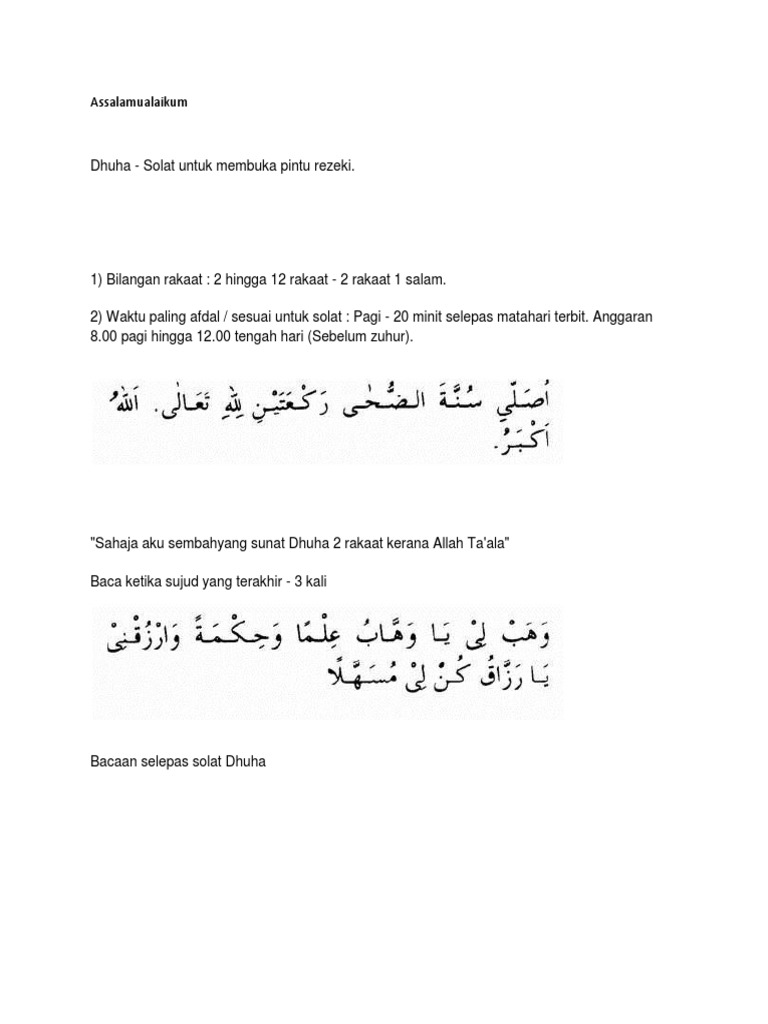 Assalamualaikum
Dhuha - Solat untuk membuka pintu rezeki.
1) Bilangan rakaat : 2 hingga 12 rakaat - 2 rakaat 1 salam.
2) Waktu paling afdal / sesuai untuk solat : Pagi - 20 minit selepas matahari terbit. Anggaran
8.00 pagi hingga 12.00 tengah hari (Sebelum zuhur).
اُصَلِّي سُنَّةَ الضُّحٰى رَكْعَتَيْنِ لِلّٰهِ تَعَالٰى. اَللّٰهُ
اَكْبَرُ.
"Sahaja aku sembahyang sunat Dhuha 2 rakaat kerana Allah Ta'ala"
Baca ketika sujud yang terakhir - 3 kali
وَهَبْ لِىْ يَا وَهَّابُ عِلْمًا وَحِكْمَةً وَارْزُقْنِىْ
يَا رَزَّاقُ كُنْ لِىْ مُسَهَّلًا
Bacaan selepas solat Dhuha